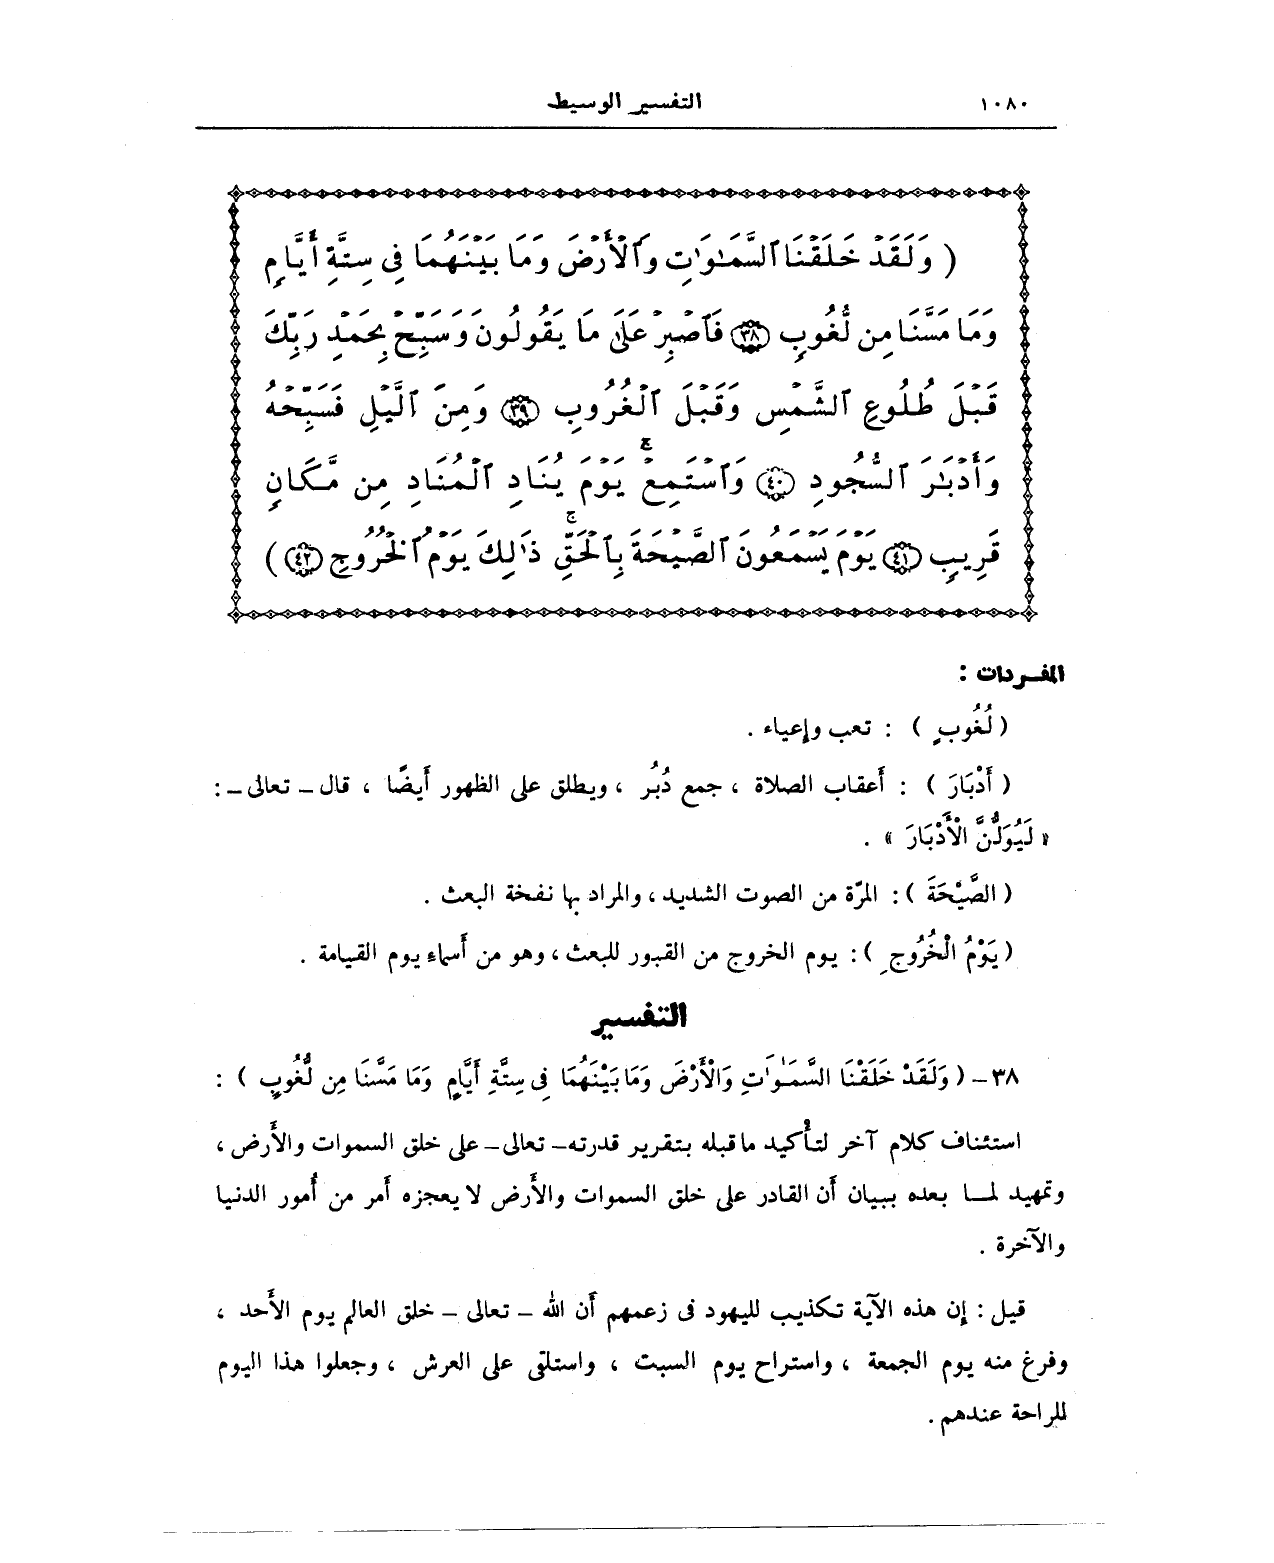 ١٠٨٠ التفسير الوسيط
( وَلَقَدْ خَلَقْنَا ٱلسَّمَٰوَٰتِ وَٱلْأَرْضَ وَمَا بَيْنَهُمَا فِى سِتَّةِ أَيَّامٍ
وَمَا مَسَّنَا مِن لُّغُوبٍ ٣٨ فَٱصْبِرْ عَلَىٰ مَا يَقُولُونَ وَسَبِّحْ بِحَمْدِ رَبِّكَ
قَبْلَ طُلُوعِ ٱلشَّمْسِ وَقَبْلَ ٱلْغُرُوبِ ٣٩ وَمِنَ ٱلَّيْلِ فَسَبِّحْهُ
وَأَدْبَٰرَ ٱلسُّجُودِ ٤٠ وَٱسْتَمِعْ يَوْمَ يُنَادِ ٱلْمُنَادِ مِن مَّكَانٍ
قَرِيبٍ ٤١ يَوْمَ يَسْمَعُونَ ٱلصَّيْحَةَ بِٱلْحَقِّ ذَٰلِكَ يَوْمُ ٱلْخُرُوجِ ٤٢ )
المفـردات :
( لُغُوبٍ ) : تعب وإعياء .
( أَدْبَارَ ) : أعقاب الصلاة ، جمع دُبُر ، ويطلق على الظهور أيضًا ، قال ـ تعالى ـ :
« لَيُوَلُّنَّ الْأَدْبَارَ » .
( الصَّيْحَةَ ) : المرّة من الصوت الشديد ، والمراد بها نفخة البعث .
( يَوْمُ الْخُرُوجِ ) : يوم الخروج من القبور للبعث ، وهو من أسماء يوم القيامة .
التفسير
٣٨ ـ ( وَلَقَدْ خَلَقْنَا السَّمَٰوَٰتِ وَالْأَرْضَ وَمَا بَيْنَهُمَا فِى سِتَّةِ أَيَّامٍ وَمَا مَسَّنَا مِن لُّغُوبٍ ) :
استئناف كلام آخر لتأكيد ما قبله بتقرير قدرته ـ تعالى ـ على خلق السموات والأرض ،
وتمهيد لمـا بعده ببيان أن القادر على خلق السموات والأرض لا يعجزه أمر من أُمور الدنيا
والآخرة .
قيل : إن هذه الآية تكذيب لليهود فى زعمهم أن الله ـ تعالى ـ خلق العالم يوم الأحد ،
وفرغ منه يوم الجمعة ، واستراح يوم السبت ، واستلقى على العرش ، وجعلوا هذا اليوم
للراحة عندهم .